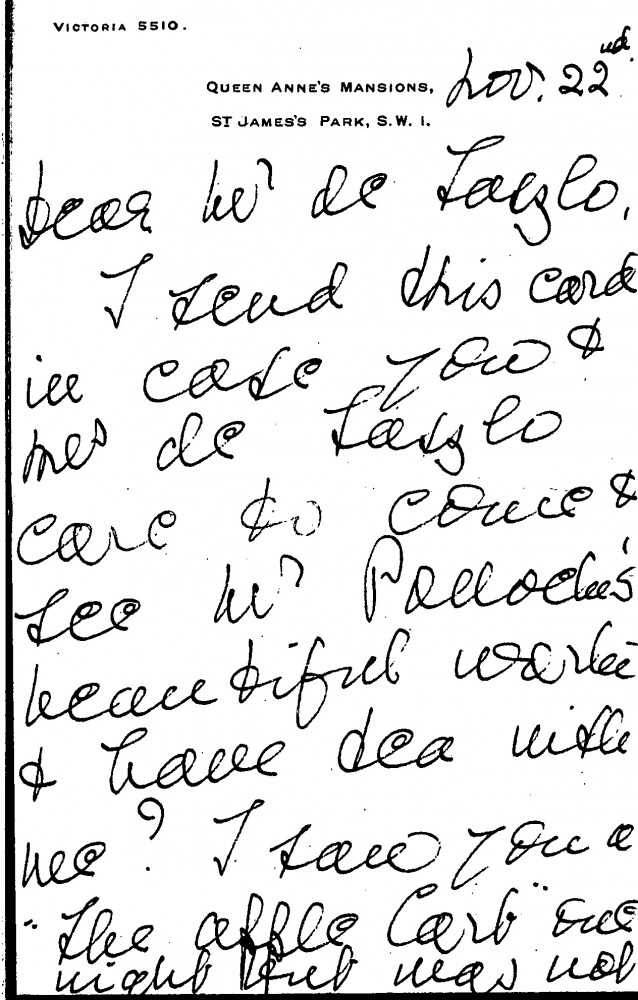 VICTORIA 5510.
QUEEN ANNE'S MANSIONS, Nov. 22nd.
ST JAMES'S PARK, S.W. 1.
Dear Mr de Laszlo,
I send this card
in case you &
Mrs de Laszlo
care to come &
see Mr Pollock's
beautiful work
& have tea with
me? I saw you a
"The Apple Cart" one
night but was not